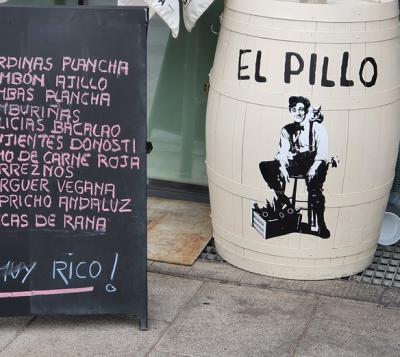 RDINAS PLANCHA
MBÓN AJILLO
MBAS PLANCHA
MBURIÑAS
LICIAS BACALAO
UJIENTES DONOSTI
MO DE CARNE ROJA
RREZNOS
RGUER VEGANA
PRICHO ANDALUZ
CAS DE RANA
MUY RICO!
EL PILLO